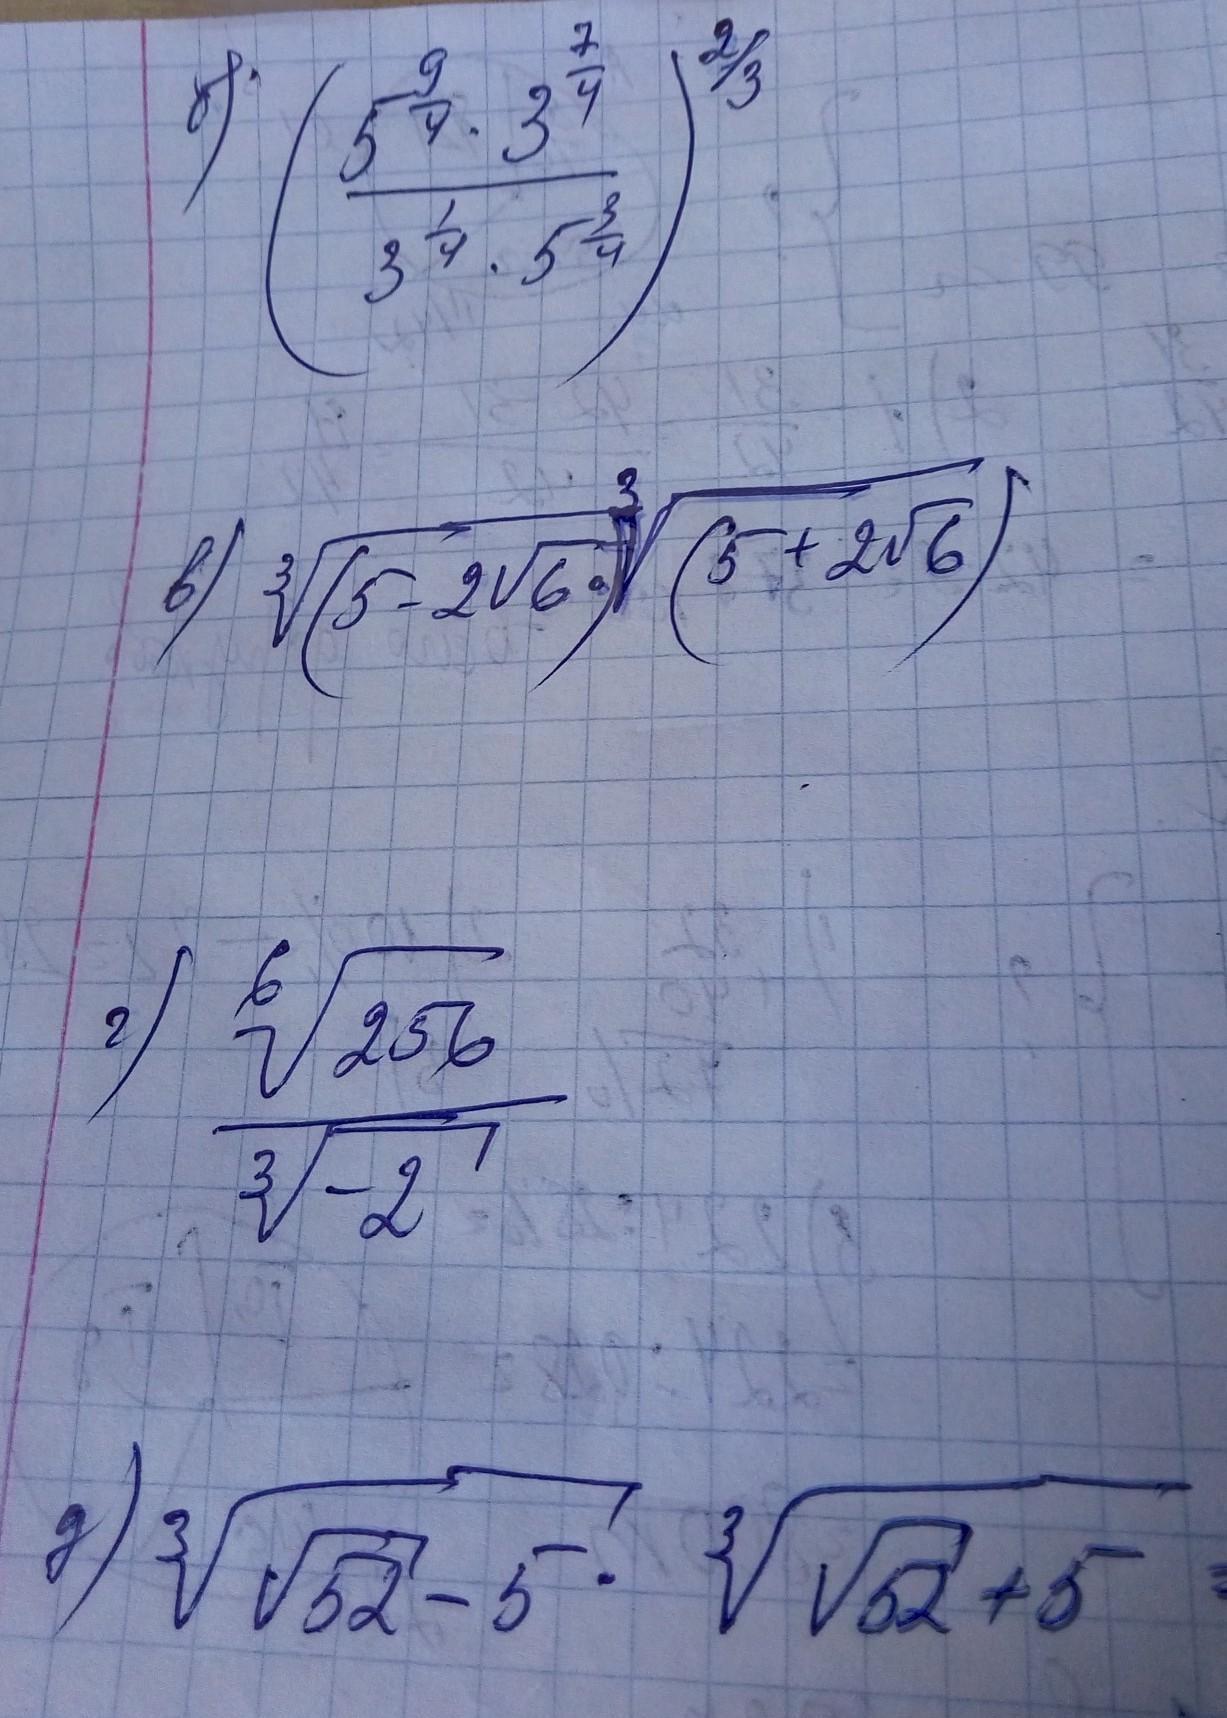 б) (5^(9/4) · 3^(7/4) / 3^(1/4) · 5^(3/4))^(2/3)
в) ∛(5-2√6) · ∛(5+2√6)
г) ⁶√256 / ∛-2
д) ∛(√52 - 5) · ∛(√52 + 5) =